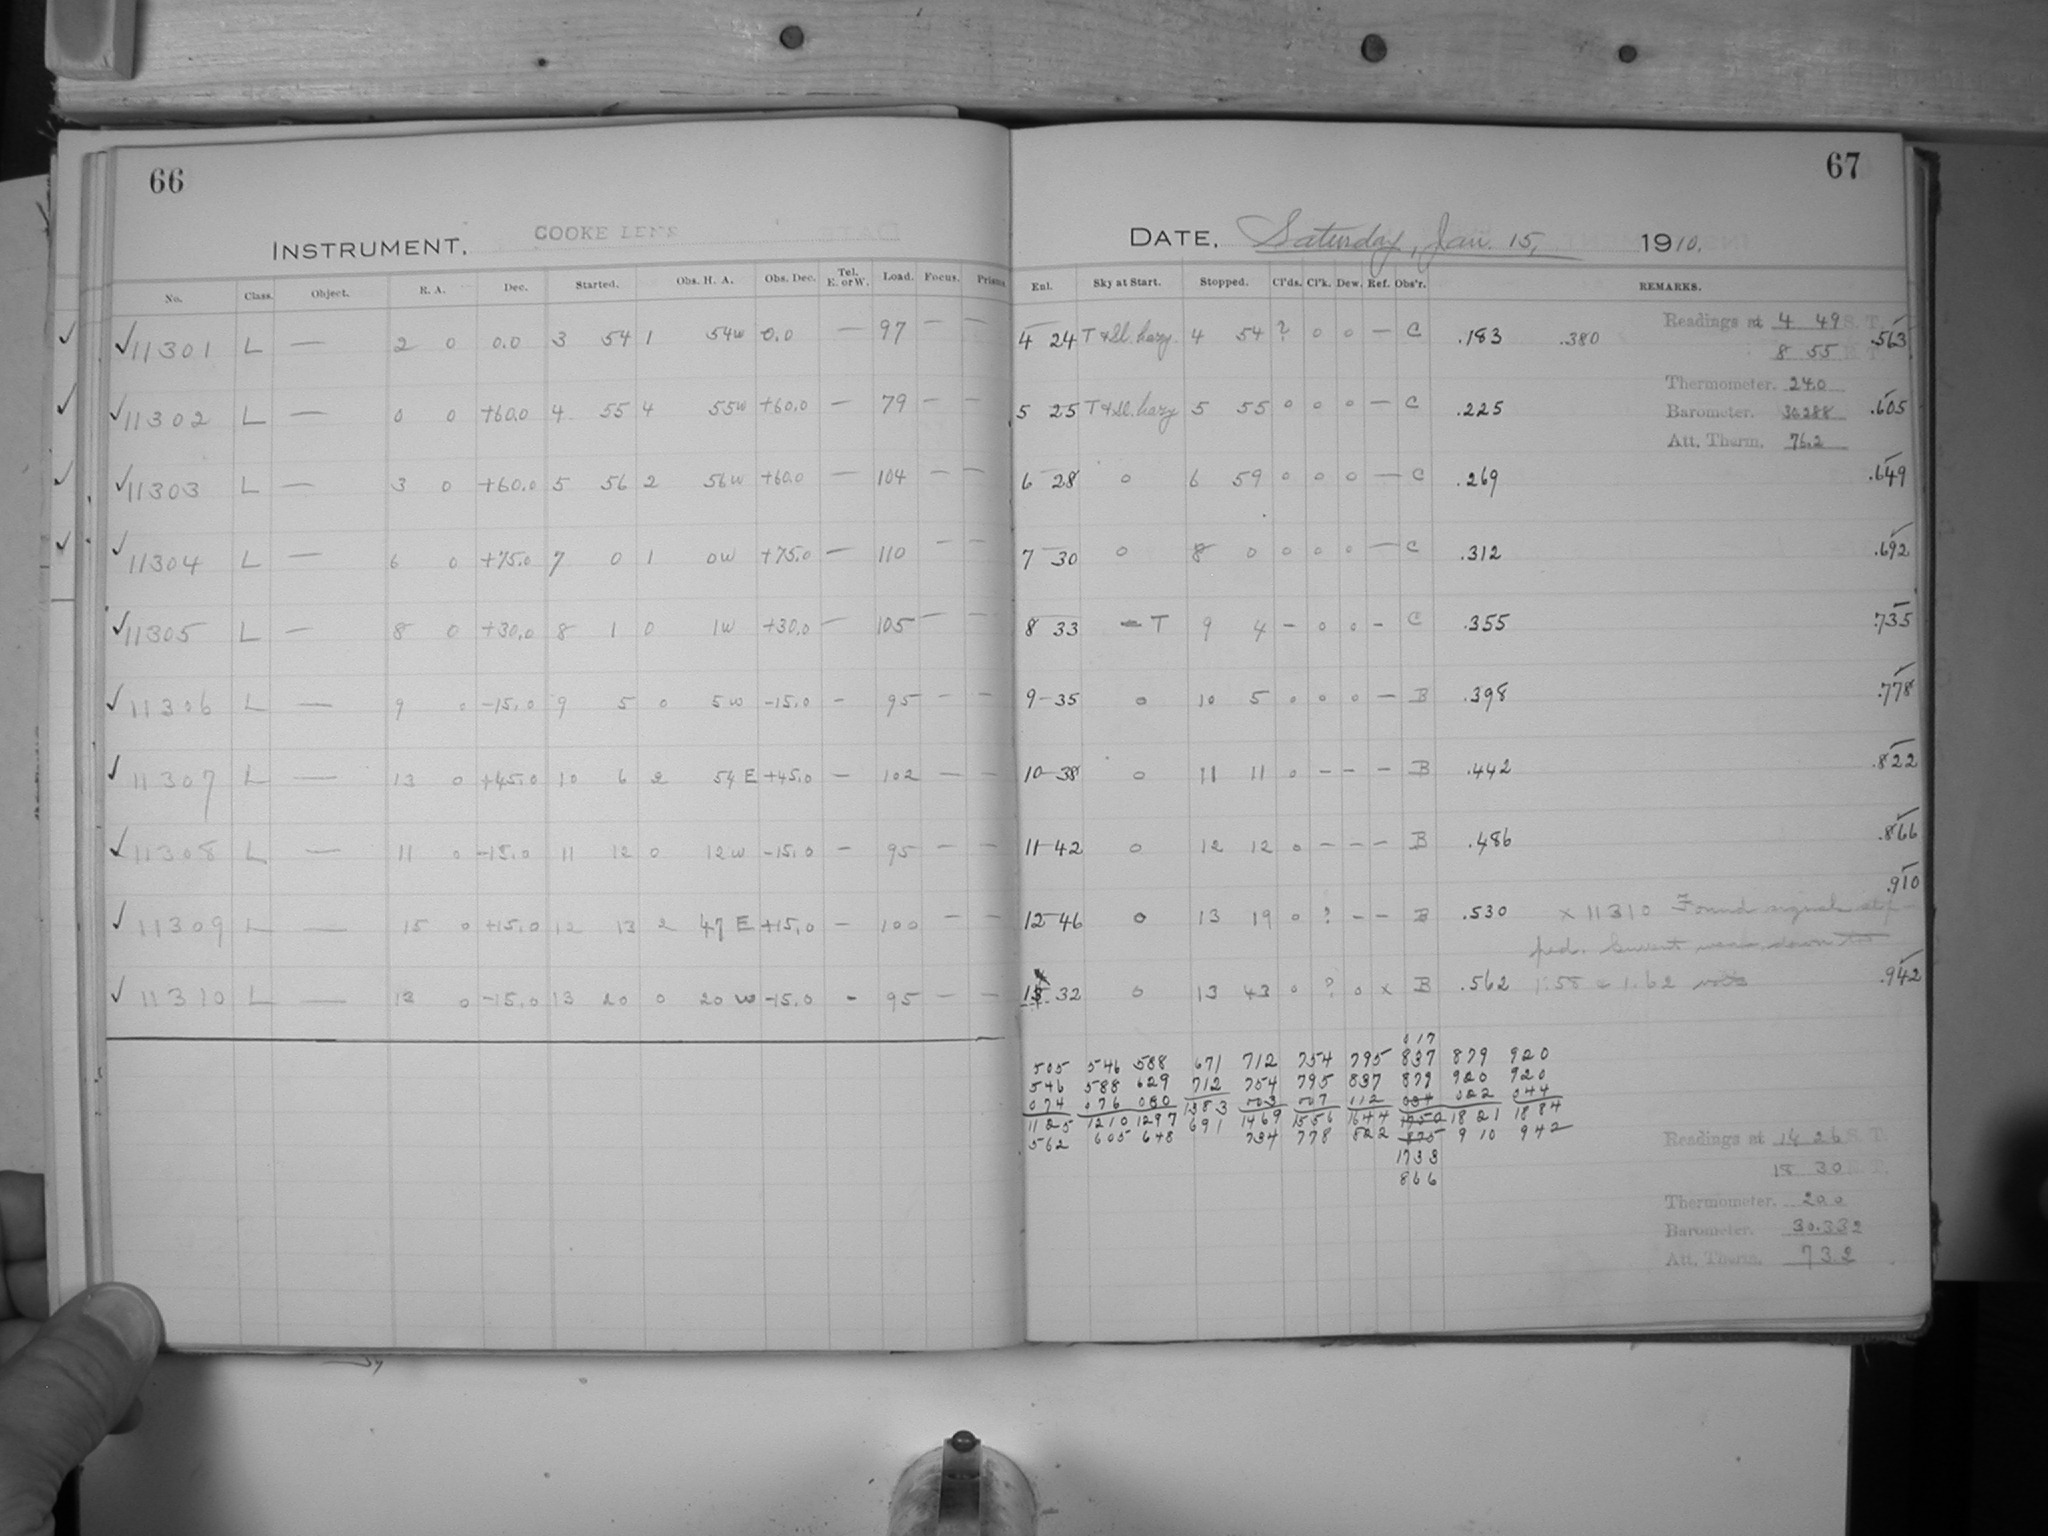 66
INSTRUMENT. COOKE LENS
No. Class. Object. R. A. Dec. Started. Obs. H. A. Obs. Dec. Tel. E. or W. Load. Focus. Prisms
✓11301 L — 2 0 0.0 3 54 1 54w 0.0 — 97 — —
✓11302 L — 0 0 +60.0 4 55 4 55w +60.0 — 79 — —
✓11303 L — 3 0 +60.0 5 56 2 56w +60.0 — 104 — —
✓11304 L — 6 0 +75.0 7 0 1 0w +75.0 — 110 — —
✓11305 L — 8 0 +30.0 8 1 0 1w +30.0 — 105 — —
✓11306 L — 9 0 -15.0 9 5 0 5w -15.0 - 95 — —
✓11307 L — 13 0 +45.0 10 6 2 54 E +45.0 — 102 — —
✓11308 L — 11 0 -15.0 11 12 0 12w -15.0 — 95 — —
✓11309 L — 15 0 +15.0 12 13 2 47 E +15.0 — 100 — —
✓11310 L — 13 0 -15.0 13 20 0 20 w -15.0 - 95 — —
67
DATE, Saturday, Jan. 15, 1910.
Enl. Sky at Start. Stopped. Cl'ds. Cl'k. Dew. Ref. Obs'r. REMARKS.
4 24 T & Sl. hazy 4 54 ? 0 0 — C .183 .380 Readings at 4 49 S. T. .563
8 55 S. T.
Thermometer. 24.0
5 25 T & Sl. hazy 5 55 0 0 0 — C .225 Barometer. 30.288 .605
Att. Therm. 76.2
6 28 0 6 59 0 0 0 — C .269 .649
7 30 0 8 0 0 0 0 — C .312 .692
8 33 T 9 4 - 0 0 - C .355 .735
9 35 0 10 5 0 0 0 — B .398 .778
10 38 0 11 11 0 - - - B .442 .822
11 42 0 12 12 0 - - - B .486 .866
.910
12 46 0 13 19 0 ? - - B .530 x 11310 Found signals stop-
ped. Current was down to
13 32 0 13 43 0 ? 0 x B .562 1.58 & 1.62 volts .942
017
505 546 588 671 712 754 795 837 879 920
546 588 629 712 754 795 837 879 920 920
074 076 080 1383 003 007 112 034 022 044
1125 1210 1297 691 1469 1556 1644 1750 1821 1884
562 605 648 734 778 822 875 910 942
1733
866
Readings at 14 26 S. T.
18 30 S. T.
Thermometer. 20.0
Barometer. 30.332
Att. Therm. 73.2